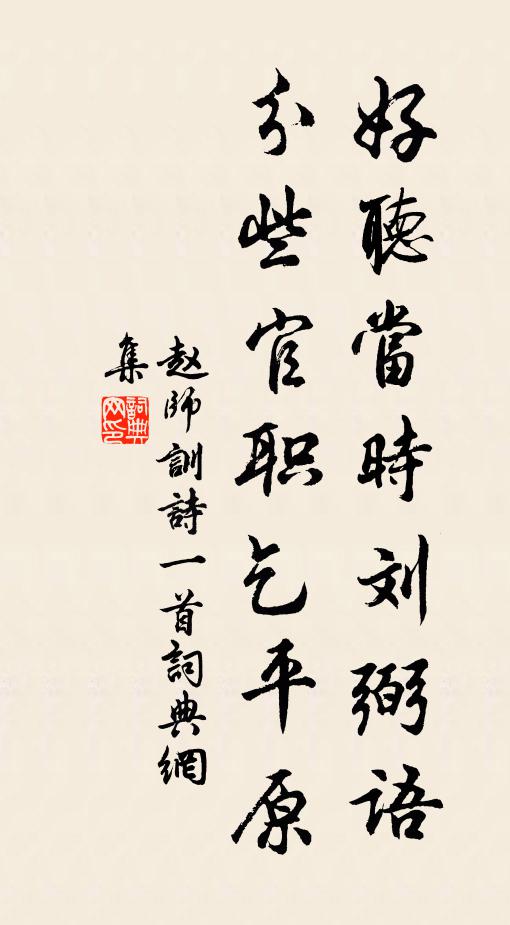 好聽當時刘弼語
分些官职乞平原
赵師訓詩一首詞典網
集
詞典
网印